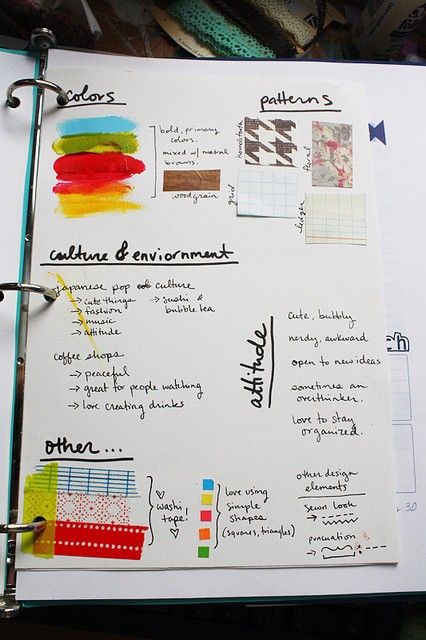 colors
bold, primary
colors.
mixed w/ neutral
browns.
woodgrain
patterns
houndstooth
floral
grid
ledger
culture & enviornment
japanese pop culture
→ cute things
→ fashion
→ music
→ attitude
→ sushi &
bubble tea
coffee shops
→ peaceful
→ great for people watching
→ love creating drinks
attitude
cute, bubbly
nerdy, awkward
open to new ideas
sometimes an
overthinker.
love to stay
organized.
other...
washi
tape!
love using
simple
shapes
(squares, triangles)
other design
elements
sewn look
puncuation
ch
30